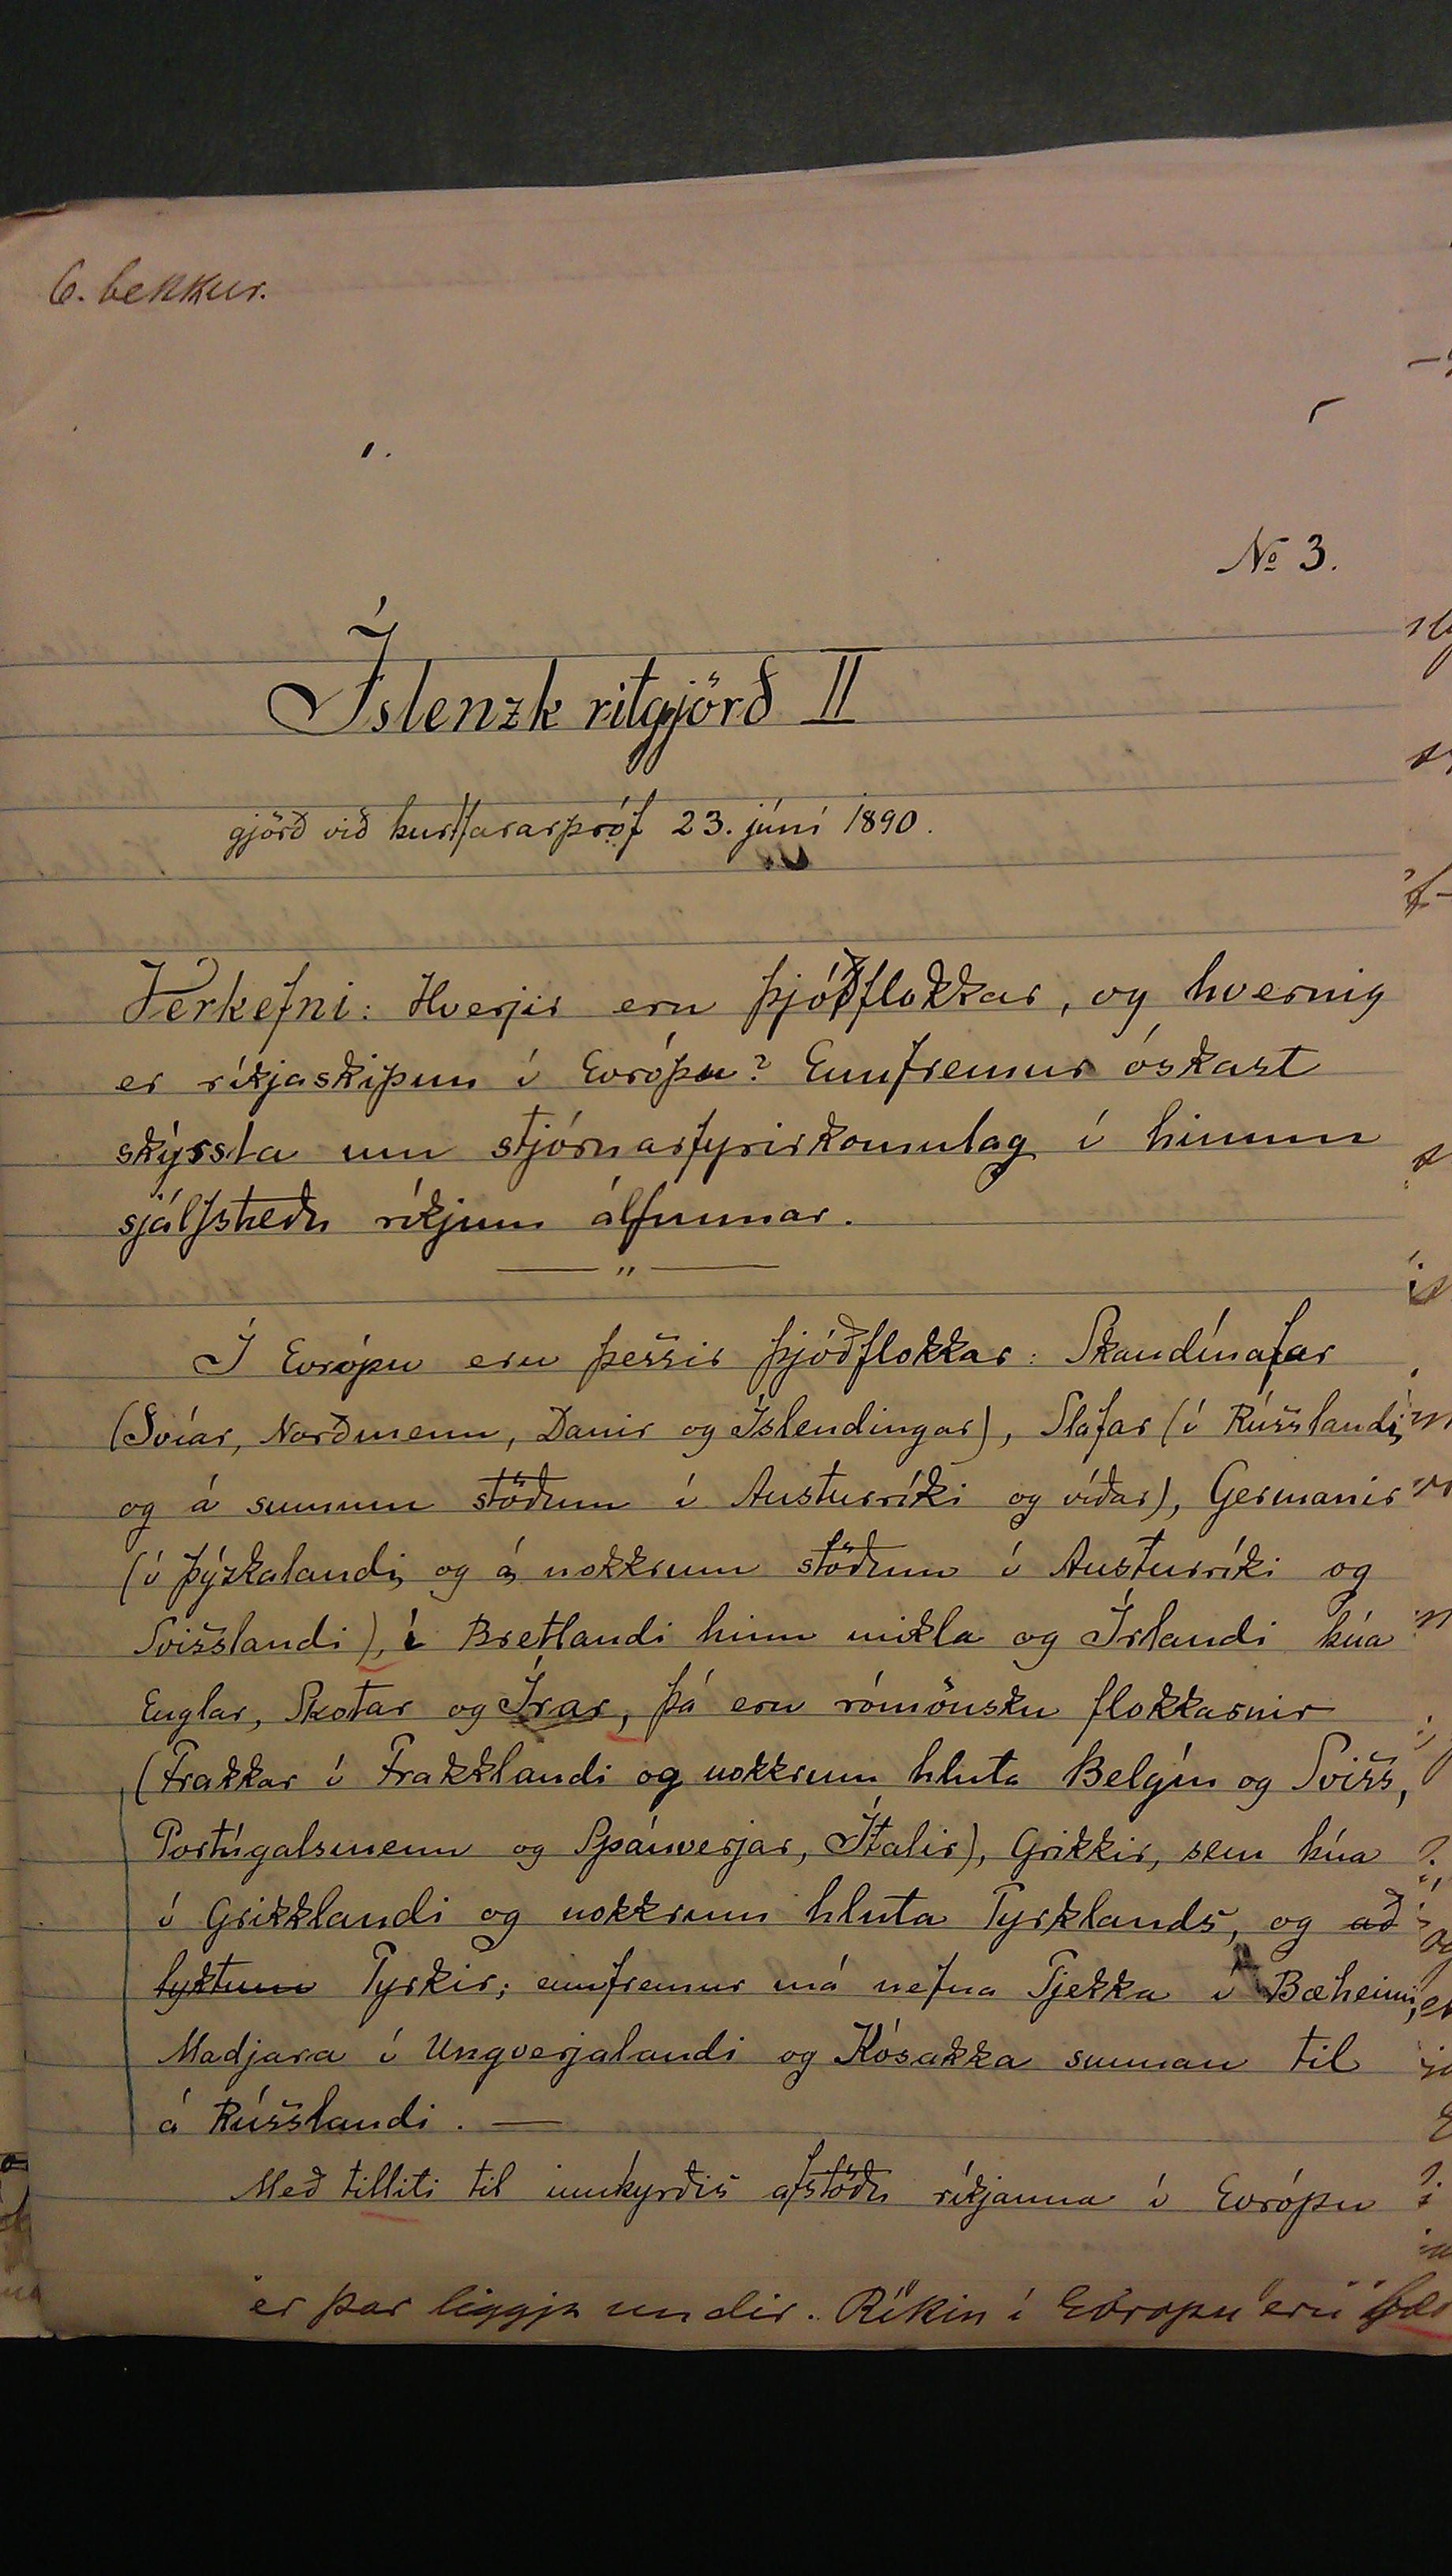 6. bekkur.
№ 3.
Íslenzk ritgjörð II
gjörð við burtfararpróf 23. júní 1890.
Verkefni: Hverjir eru þjóðflokkar, og hvernig
er ríkjaskipun í Evrópu? Ennfremur óskast
skýrsla um stjórnarfyrirkomulag í hinum
sjálfstæðu ríkjum álfunnar.
— „ —
Í Evrópu eru þessir þjóðflokkar: Skandínafar
(Svíar, Norðmenn, Danir og Íslendingar), Slafar (í Rússlandi,
og á sumum stöðum í Austurríki og víðar), Germanir
(í Þýzkalandi, og á nokkrum stöðum í Austurríki og
Svisslandi), í Bretlandi hinu mikla og Írlandi búa
Englar, Skotar og Írar, þá eru rómönsku flokkarnir
(Frakkar í Frakklandi og nokkrum hluta Belgíu og Sviss,
Portúgalsmenn og Spánverjar, Ítalir), Grikkir, sem búa
í Grikklandi og nokkrum hluta Tyrklands, og að
lyktum Tyrkir; ennfremur má nefna Tjekka í Bæheimi,
Madjara í Ungverjalandi og Kósakka sunnan til
á Rússlandi. —
Með tilliti til innbyrðis afstöðu ríkjanna í Evrópu
er þar liggja undir. Ríkin í Evropu eru